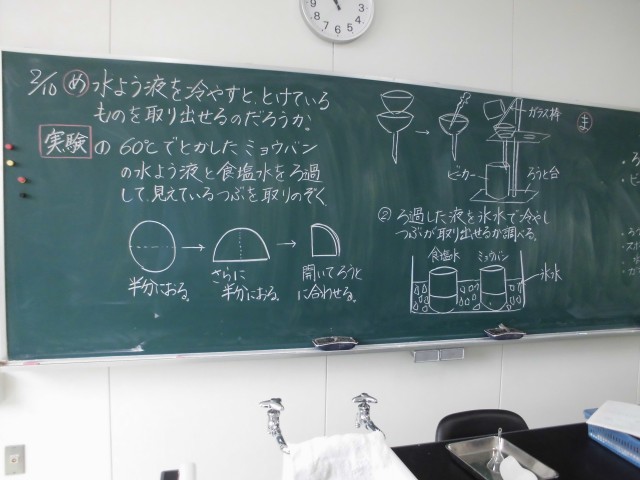 2/10 め 水よう液を冷やすと、とけている
ものを取り出せるのだろうか。
実験 ① 60℃でとかしたミョウバン
の水よう液と食塩水をろ過
して、見えているつぶを取りのぞく。
半分におる。
さらに
半分におる。
開いてろうと
に合わせる。
ガラス棒
ビーカー
ろうと台
② ろ過した液を氷水で冷やし
つぶが取り出せるか調べる。
食塩水
ミョウバン
氷水
ま